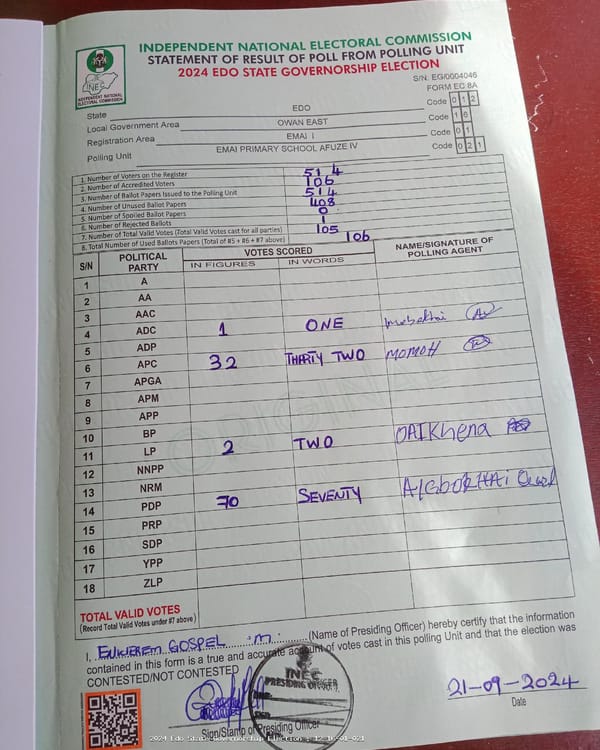 INDEPENDENT NATIONAL ELECTORAL COMMISSION
STATEMENT OF RESULT OF POLL FROM POLLING UNIT
2024 EDO STATE GOVERNORSHIP ELECTION
INEC
INDEPENDENT NATIONAL
ELECTORAL COMMISSION
S/N. EG/0004046
FORM EC 8A
State EDO Code 0 1 2
Local Government Area OWAN EAST Code 1 6
Registration Area EMAI I Code 0 1
Polling Unit EMAI PRIMARY SCHOOL AFUZE IV Code 0 2 1
1. Number of Voters on the Register 514
2. Number of Accredited Voters 106
3. Number of Ballot Papers Issued to the Polling Unit 514
4. Number of Unused Ballot Papers 408
5. Number of Spoiled Ballot Papers 0
6. Number of Rejected Ballots 1
7. Number of Total Valid Votes (Total Valid Votes cast for all parties) 105
8. Total Number of Used Ballots Papers (Total of #5 + #6 + #7 above) 106
S/N POLITICAL PARTY VOTES SCORED NAME/SIGNATURE OF POLLING AGENT
IN FIGURES IN WORDS
1 A
2 AA
3 AAC
4 ADC 1 ONE
5 ADP
6 APC 32 THARTY TWO MOMOH
7 APGA
8 APM
9 APP
10 BP
11 LP 2 TWO OAIKhena
12 NNPP
13 NRM
14 PDP 70 SEVENTY AIGBOKHAI
15 PRP
16 SDP
17 YPP
18 ZLP
TOTAL VALID VOTES
(Record Total Valid Votes under #7 above)
I, GOSPEL .M. (Name of Presiding Officer) hereby certify that the information
contained in this form is a true and accurate account of votes cast in this polling Unit and that the election was
CONTESTED/NOT CONTESTED
INEC
PRESIDING OFFICER
21-09-2024
Sign/Stamp of Presiding Officer Date
2024 Edo State Governorship Election - 12-16-01-021